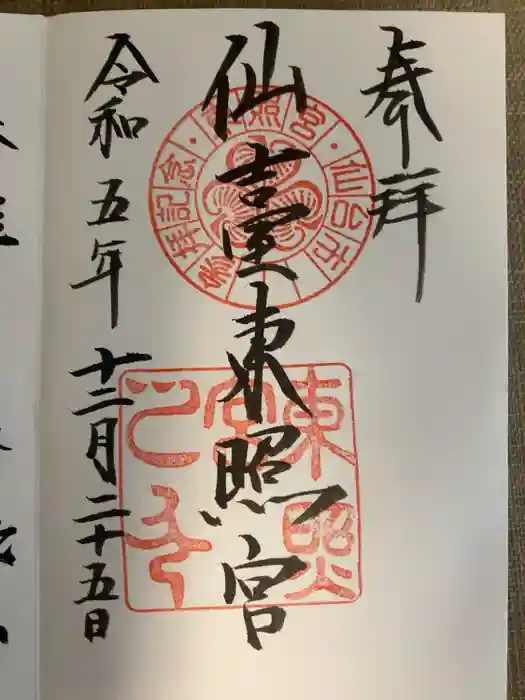 奉拝
仙臺東照宮
令和五年十二月二十五日
東照宮・仙台市
参拝記念
東照
宮